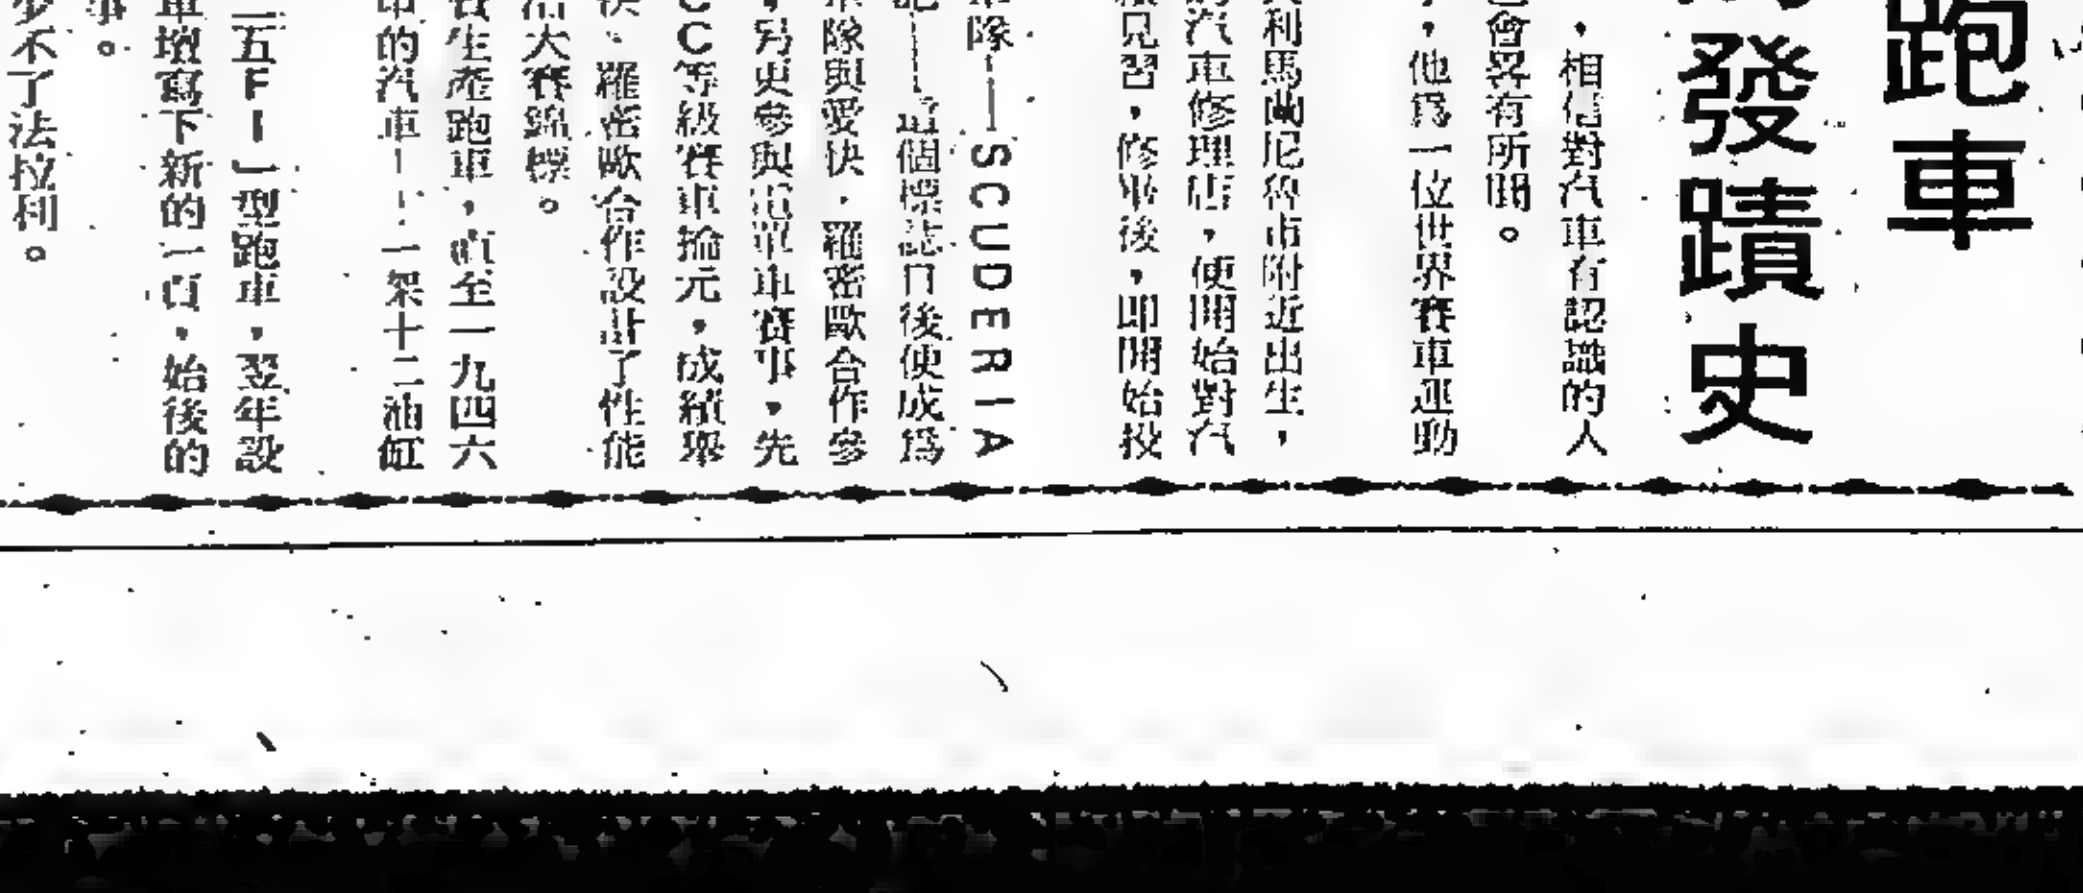 跑車
發蹟史
，相信對汽車有認識的人
會畧有所聞。
，他爲一位世界賽車運動
利馬蘭尼魯市附近出生，
汽車修理店，便開始對汽
見習，修畢後，即開始投
隊——SCUDERIA
——這個標誌日後便成爲
隊與愛快．羅密歐合作參
，另更參與電單車賽事，先
CC等級賽車掄元，成績舉
、羅密歐合作設計了性能
大賽錦標。
生產跑車，直至一九四六
的汽車——一架十二油缸
二五FI」型跑車，翌年設
車壇寫下新的一頁，始後的
事。
少不了法拉利。